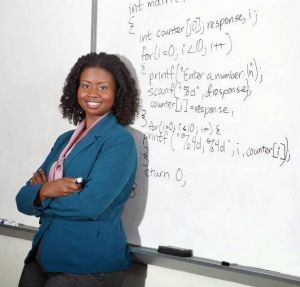 int main(
{
int counter[10], response, i;
for(i=0; i<10; i++)
{
printf("Enter a number:\n");
scanf("%d", &response);
counter[i]=response;
}
for(i=0; i<10; i++) {
printf("%4d, %4d", i, counter[i]);
}
return 0;